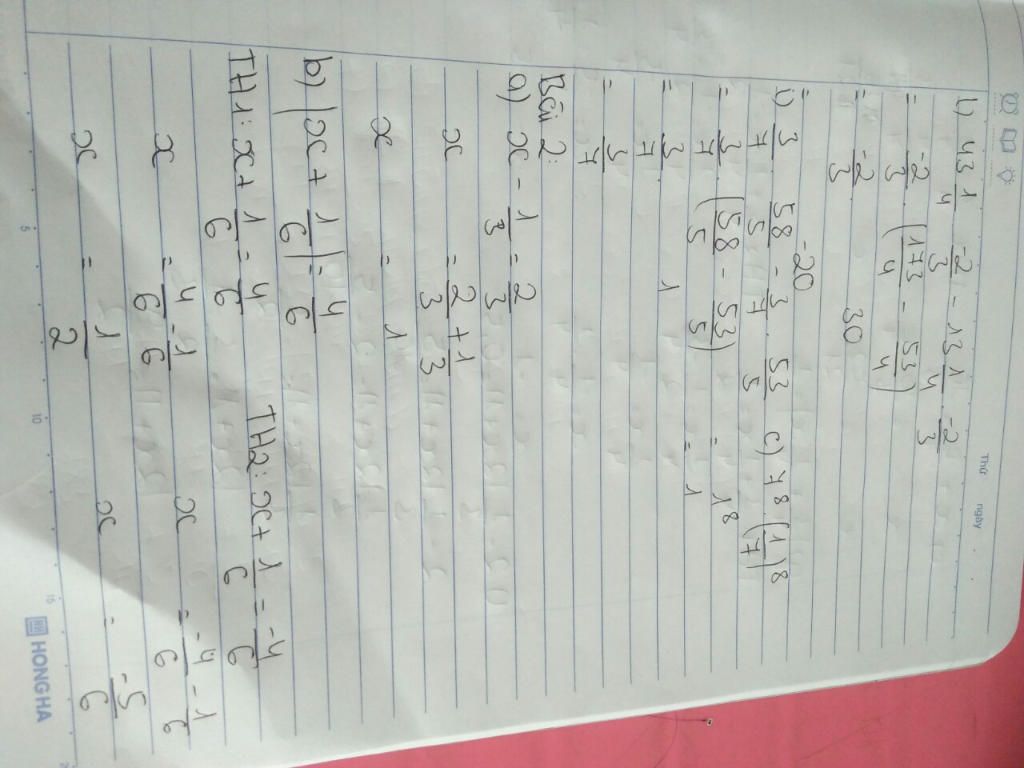 Thứ ngày
b) 43 1/4 . -2/3 - 13 1/4 . -2/3
= -2/3 . (173/4 - 53/4)
= -2/3 . 30
= -20
b) 3/7 . 58/5 - 3/7 . 53/5 c) 7^8 . (1/7)^8
= 3/7 . (58/5 - 53/5) = 1^8
= 3/7 . 1 = 1
= 3/7
Bài 2:
a) x - 1/3 = 2/3
x = 2/3 + 1/3
x = 1
b) |x + 1/6| = 4/6
TH1: x + 1/6 = 4/6 TH2: x + 1/6 = -4/6
x = 4/6 - 1/6 x = -4/6 - 1/6
x = 1/2 x = -5/6
5 10 15
HONG HA